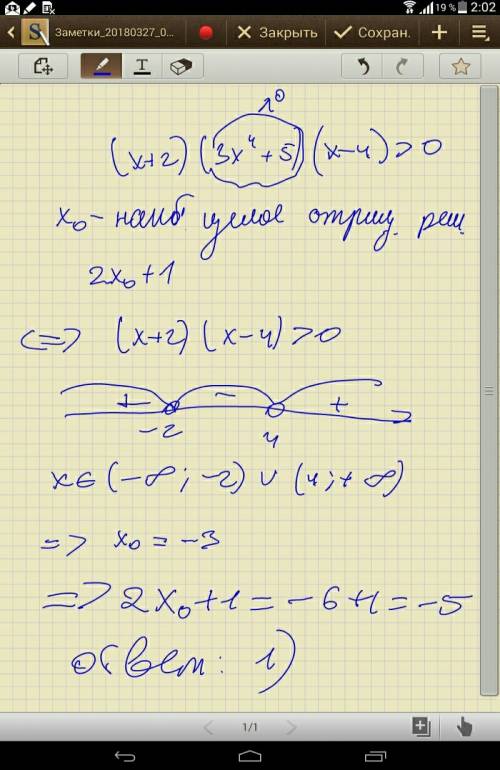 19 % 2:02
Заметки_20180327_0... Закрыть Сохран.
>0
(x+2) (3x⁴+5) (x-4) > 0
x₀ - наиб целое отриц. реш
2x₀ + 1
<=> (x+2) (x-4) > 0
+ - +
-2 4
x∈ (-∞; -2) ∪ (4; +∞)
=> x₀ = -3
=> 2x₀+1 = -6+1 = -5
ответ: 1)
1/1